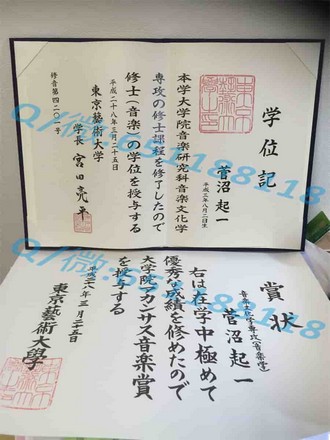 学位記
菅沼起一
平成三年八月二日生
本学大学院音楽研究科音楽文化学
専攻の修士課程を修了したので
修士(音楽)の学位を授与する
平成二十八年三月二十五日
東京藝術大学
学長 宮田亮平
修音第四二〇一号
賞状
菅沼起一
右は在学中極めて
優秀な成績を修めたので
大学院アカンサス音楽賞
を授与する
平成二十八年三月二十五日
東京藝術大學